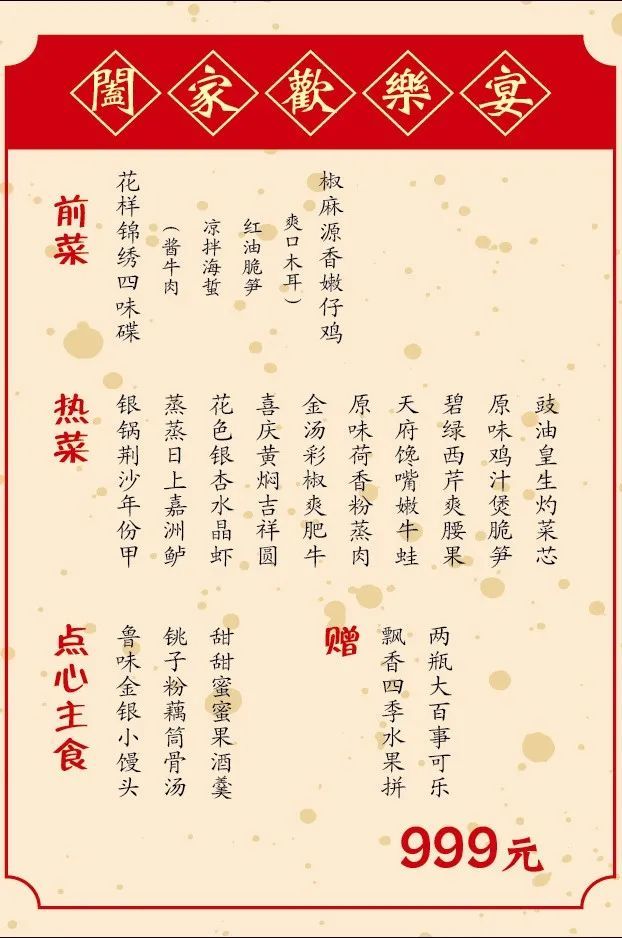 闔家歡樂宴
前菜
花样锦绣四味碟
（酱牛肉
凉拌海蜇
红油脆笋
爽口木耳）
椒麻源香嫩仔鸡
热菜
银锅荆沙年份甲
蒸蒸日上嘉洲鲈
花色银杏水晶虾
喜庆黄焖吉祥圆
金汤彩椒爽肥牛
原味荷香粉蒸肉
天府馋嘴嫩牛蛙
碧绿西芹爽腰果
原味鸡汁煲脆笋
豉油皇生灼菜芯
点心主食
鲁味金银小馒头
铫子粉藕筒骨汤
甜甜蜜蜜果酒羹
赠
飘香四季水果拼
两瓶大百事可乐
999元